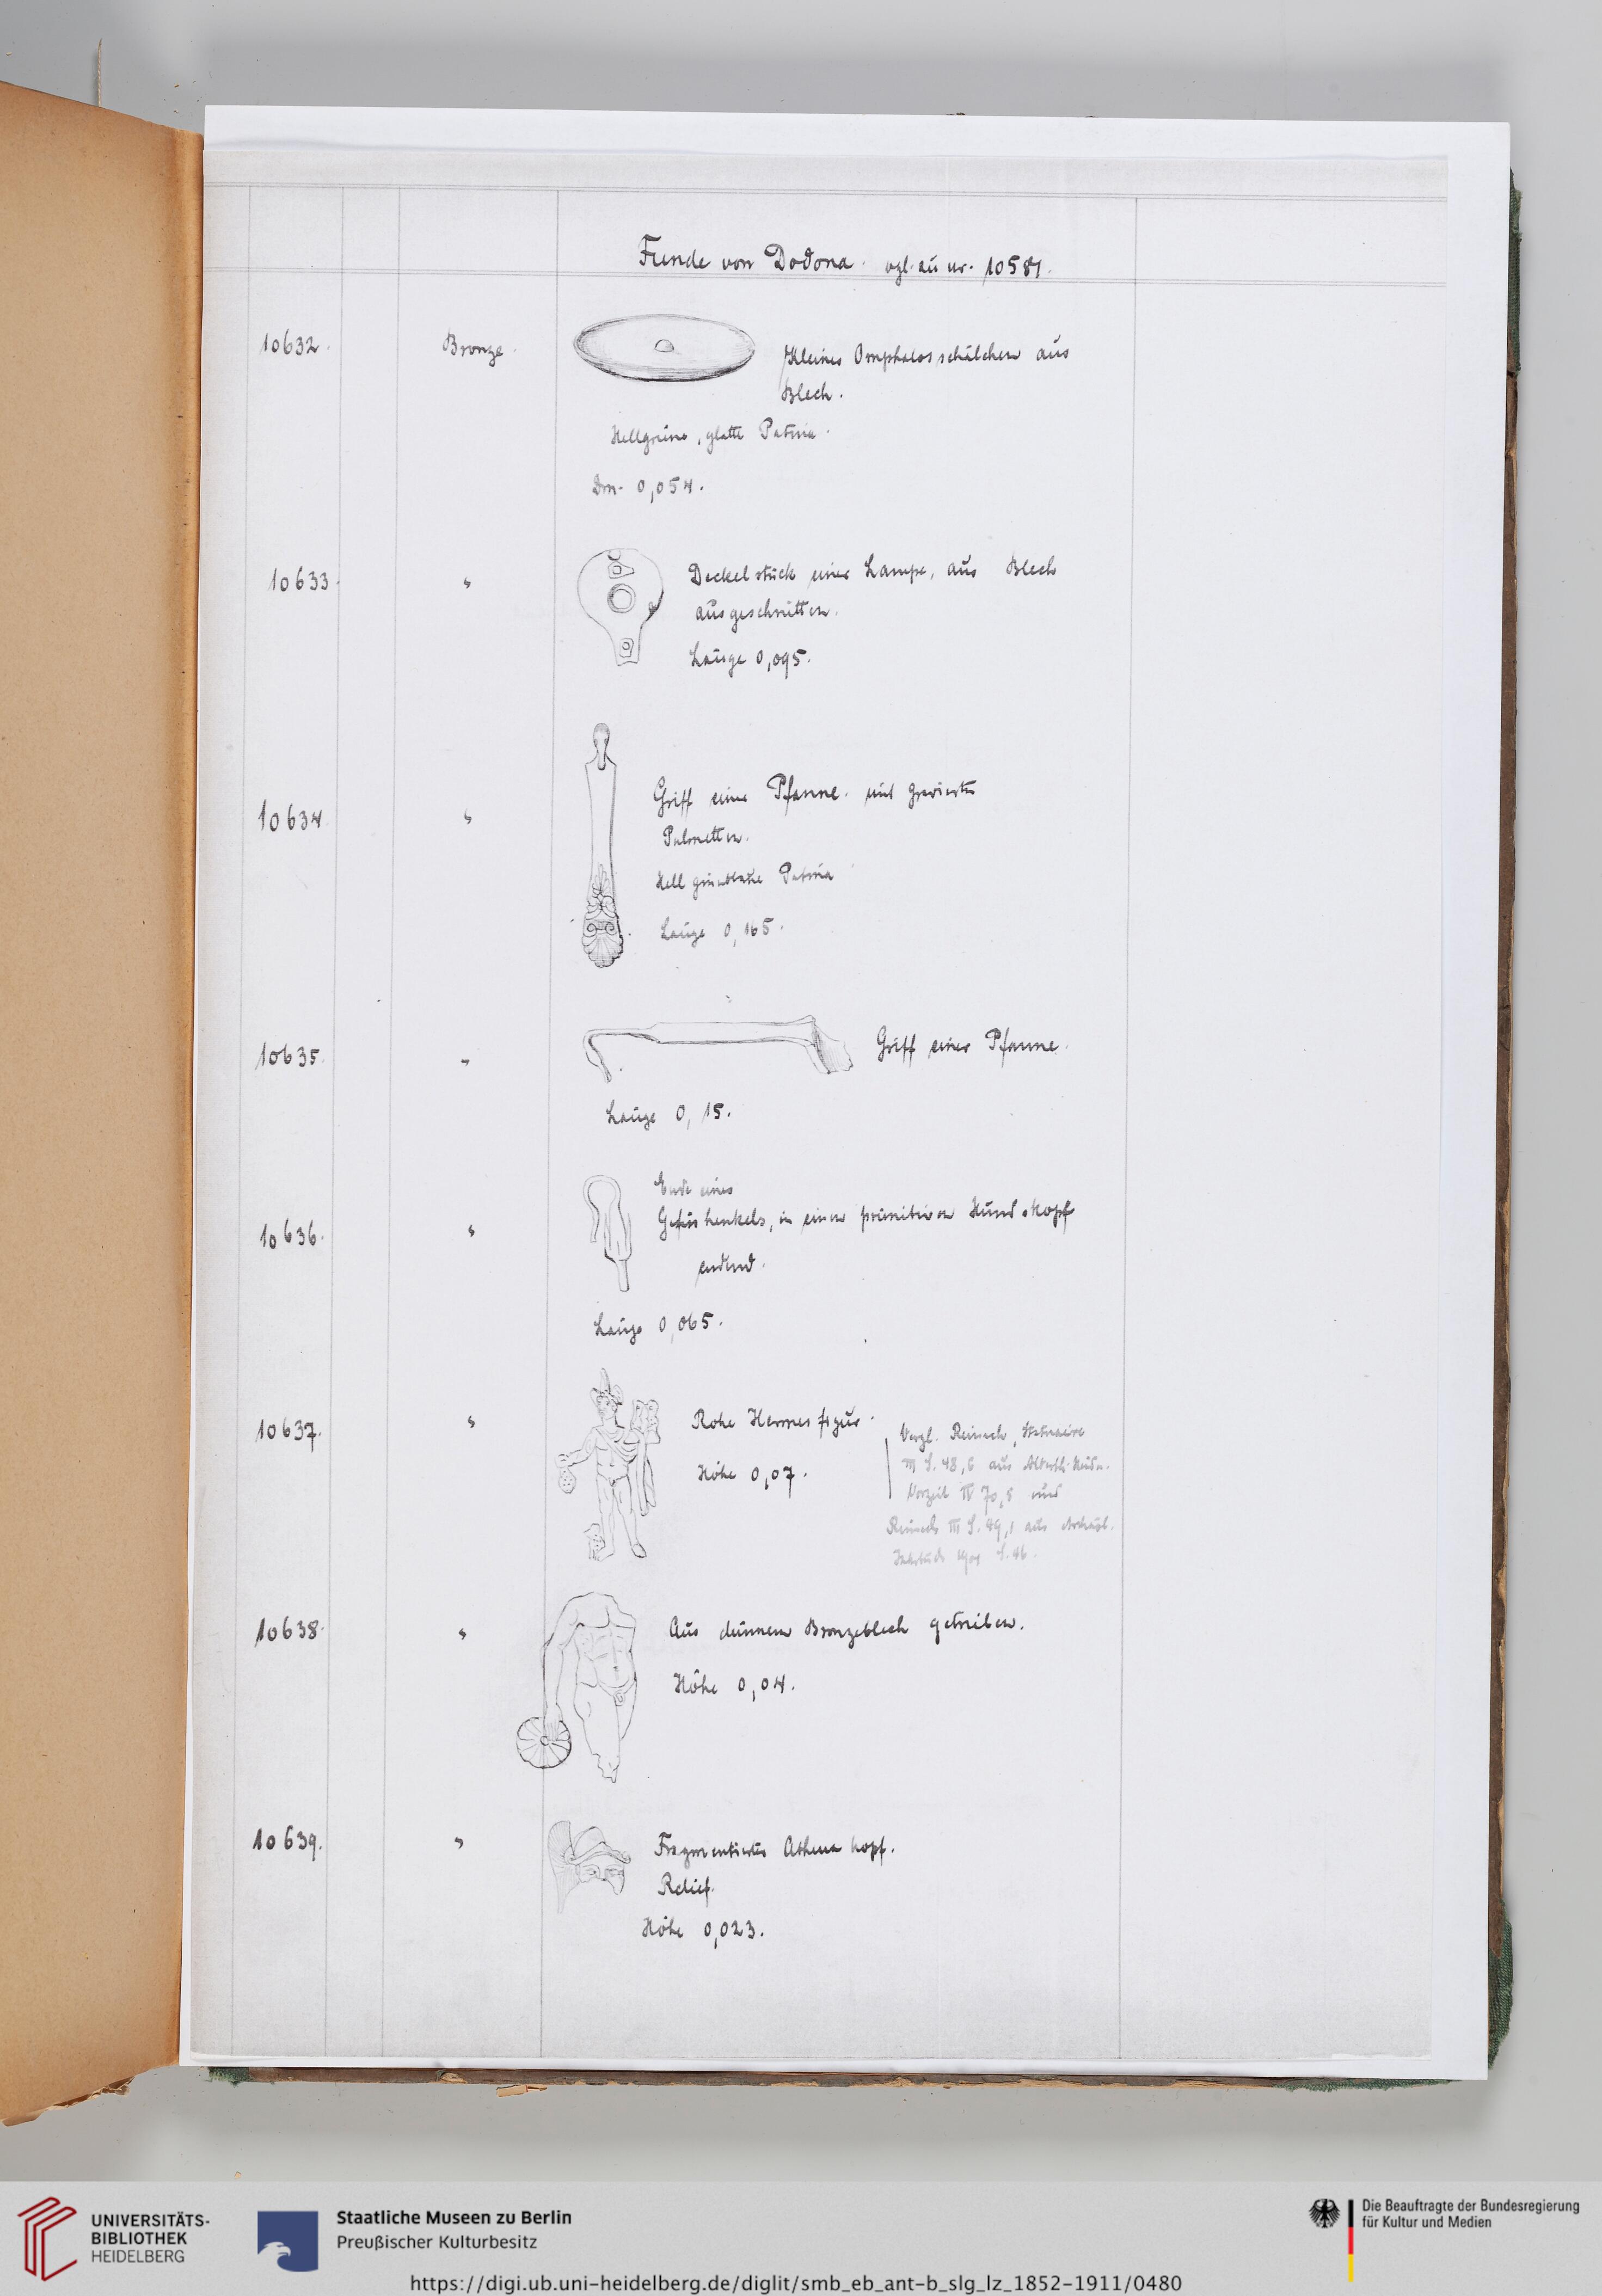 Funde von Dodona. vgl. zu nr. 10581.
10632. Bronze. Kleines Omphalosschälchen aus
Blech.
Hellgrüne, glatte Patina.
Dm. 0,054.
10633. " Deckelstück einer Lampe, aus Blech
ausgeschnitten.
Länge 0,095.
10634. " Griff einer Pfanne. mit gravierter
Palmetten.
Hell grünblaue Patina
Länge 0,165.
10635. " Griff einer Pfanne.
Länge 0,15.
Ende eines
10636. " Gefäshenkels, in einen primitiven Hundskopf
endend.
Länge 0,065.
10637. " Rohe Hermesfigur.
Höhe 0,07.
Vergl. Reinach, Statuaire
III S. 48,6 aus
Vorzeit IV 70,8 und
Reinach III S. 49,1 aus Archäol.
Jahrbuch S. 46.
10638. " Aus dünnem Bronzeblech getrieben.
Höhe 0,04.
10639. " Fragmentiertes Athena kopf.
Relief.
Höhe 0,023.
UNIVERSITÄTS-
BIBLIOTHEK
HEIDELBERG
Staatliche Museen zu Berlin
Preußischer Kulturbesitz
Die Beauftragte der Bundesregierung
für Kultur und Medien
https://digi.ub.uni-heidelberg.de/diglit/smb_eb_ant-b_slg_lz_1852-1911/0480